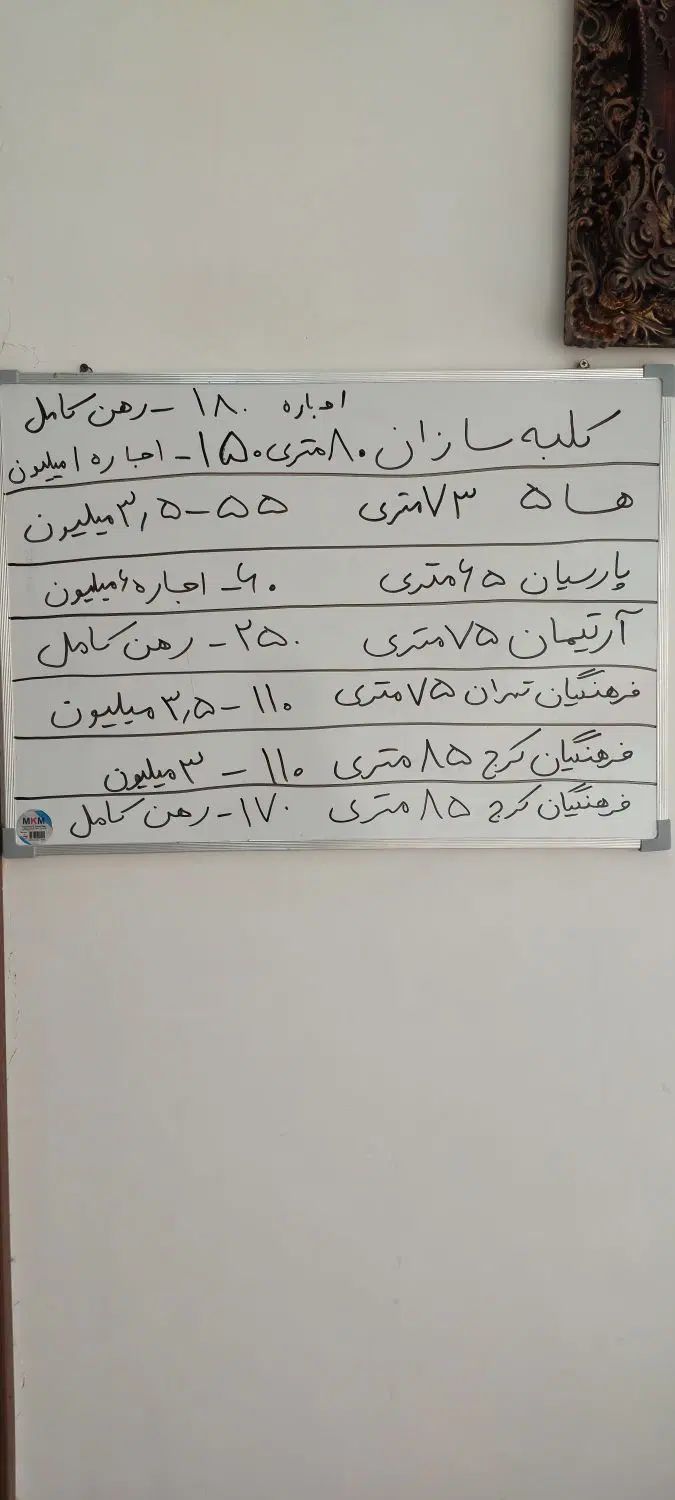 اجاره ۱۸۰ - رهن کامل
کلبه سازان ۸۰متری ۱۵۰ - اجاره ۱میلیون
هسا ۵ ۷۳متری ۵۵ - ۳٫۵میلیون
پارسیان ۶۵متری ۶۰ - اجاره ۶میلیون
آرتیمان ۷۵متری ۲۵۰ - رهن کامل
فرهنگیان تهران ۷۵متری ۱۱۰ - ۳٫۵میلیون
فرهنگیان کرج ۸۵ متری ۱۱۰ - ۳میلیون
فرهنگیان کرج ۸۵ متری ۱۷۰ - رهن کامل
MKM